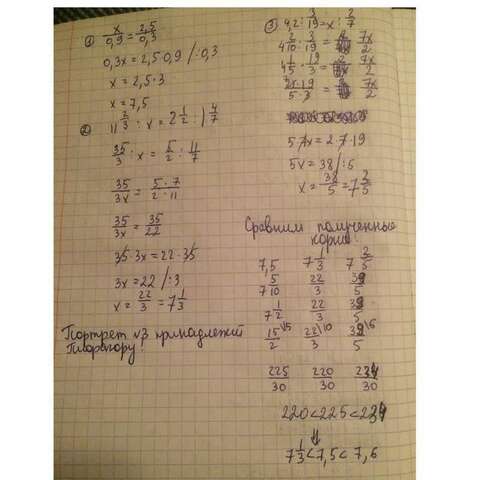 ① x/0,9 = 2,5/0,3
0,3x = 2,5·0,9 /:0,3
x = 2,5·3
x = 7,5
② 11 2/3 : x = 2 1/2 : 1 4/7
35/3 : x = 5/2 : 11/7
35/3x = 5·7/2·11
35/3x = 35/22
35·3x = 22·35
3x = 22 /:3
x = 22/3 = 7 1/3
Портрет №3 принадлежит
Пифагору.
③ 4,2 : 3/19 = x : 2/7
4 2/10 : 3/19 = 7x/2
4 1/5 · 19/3 = 7x/2
·19/5·3 = 7x/2
5·7x = 2·7·19
5x = 38 /:5
x = 38/5 = 7 3/5
Сравним полученные
корни:
7,5 7 1/3 7 2/5
7 5/10 22/3 39/5
7 1/2 22/3 39/5
15/2 \15 22/3 \10 39/5 \6
225/30 220/30 234/30
220 < 225 < 234
⇓
7 1/3 < 7,5 < 7,6